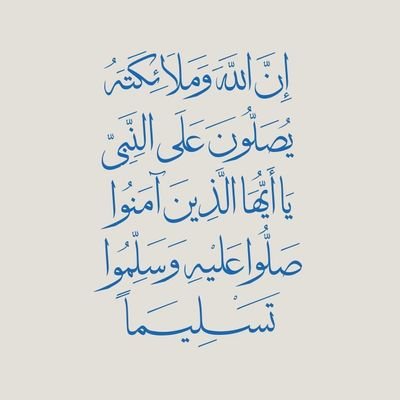 إِنَّ اللَّهَ وَمَلَائِكَتَهُ
يُصَلُّونَ عَلَى النَّبِيِّ
يَا أَيُّهَا الَّذِينَ آمَنُوا
صَلُّوا عَلَيْهِ وَسَلِّمُوا
تَسْلِيمَاً